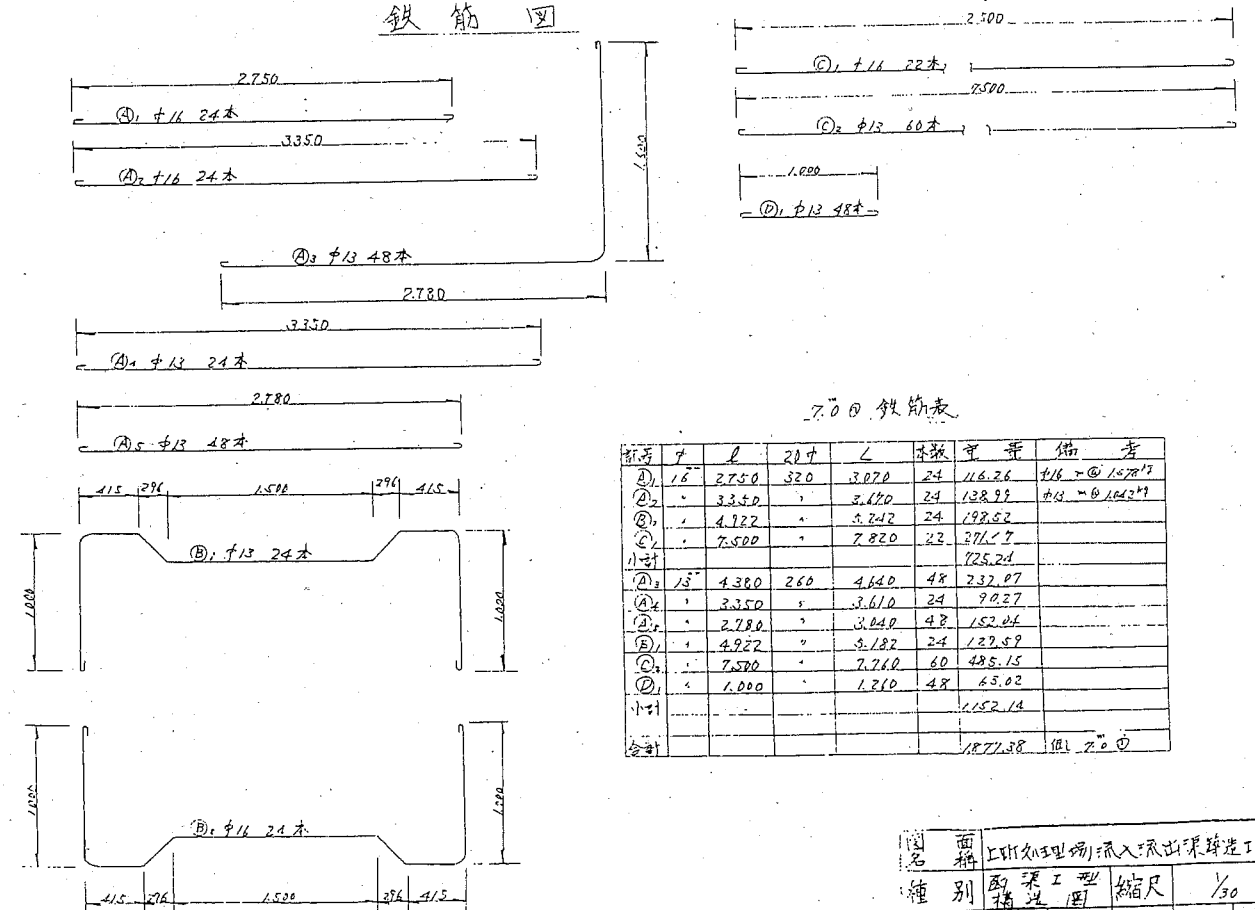 鉄筋図
2.750
Ⓐ1 φ16 24本
3.350
Ⓐ2 φ16 24本
1.600
Ⓐ3 φ13 48本
2.780
3.350
Ⓐ4 φ13 24本
2.780
Ⓐ5 φ13 48本
415 296 1.500 296 415
Ⓑ1 φ13 24本
1.000
1.000
1.000
1.000
Ⓑ2 φ16 24本
415 296 1.500 296 415
7.500
Ⓒ1 φ16 22本
7.500
Ⓒ2 φ13 60本
1.000
Ⓓ1 φ13 48本
鉄筋表
記号 φ l 20φ L 本数 重量 備考
Ⓐ1 16 2.750 320 3.070 24 116.26
Ⓐ2 〃 3.350 〃 3.670 24 138.99
Ⓑ2 〃 4.922 〃 5.242 24 198.52
Ⓒ1 〃 7.500 〃 7.820 22 271.47
小計 725.24
Ⓐ3 13 4.380 260 4.640 48 232.07
Ⓐ4 〃 3.350 〃 3.610 24 90.27
Ⓐ5 〃 2.780 〃 3.040 48 152.04
Ⓑ1 〃 4.922 〃 5.182 24 129.59
Ⓒ2 〃 7.500 〃 7.760 60 485.15
Ⓓ1 〃 1.000 〃 1.260 48 63.02
小計 1.152.14
合計 1877.38 但し 7.0
図面名称 処理場流入流出渠築造工
種別 渠工型構造図 縮尺 1/30